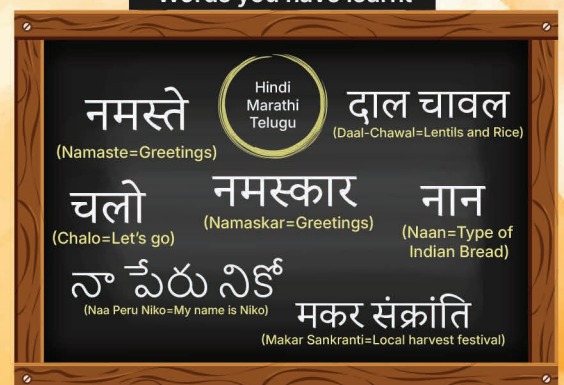 Words you have learnt
Hindi
Marathi
Telugu
नमस्ते
(Namaste=Greetings)
दाल चावल
(Daal-Chawal=Lentils and Rice)
चलो
(Chalo=Let's go)
नमस्कार
(Namaskar=Greetings)
नान
(Naan=Type of
Indian Bread)
నా పేరు నికో
(Naa Peru Niko=My name is Niko)
मकर संक्रांति
(Makar Sankranti=Local harvest festival)